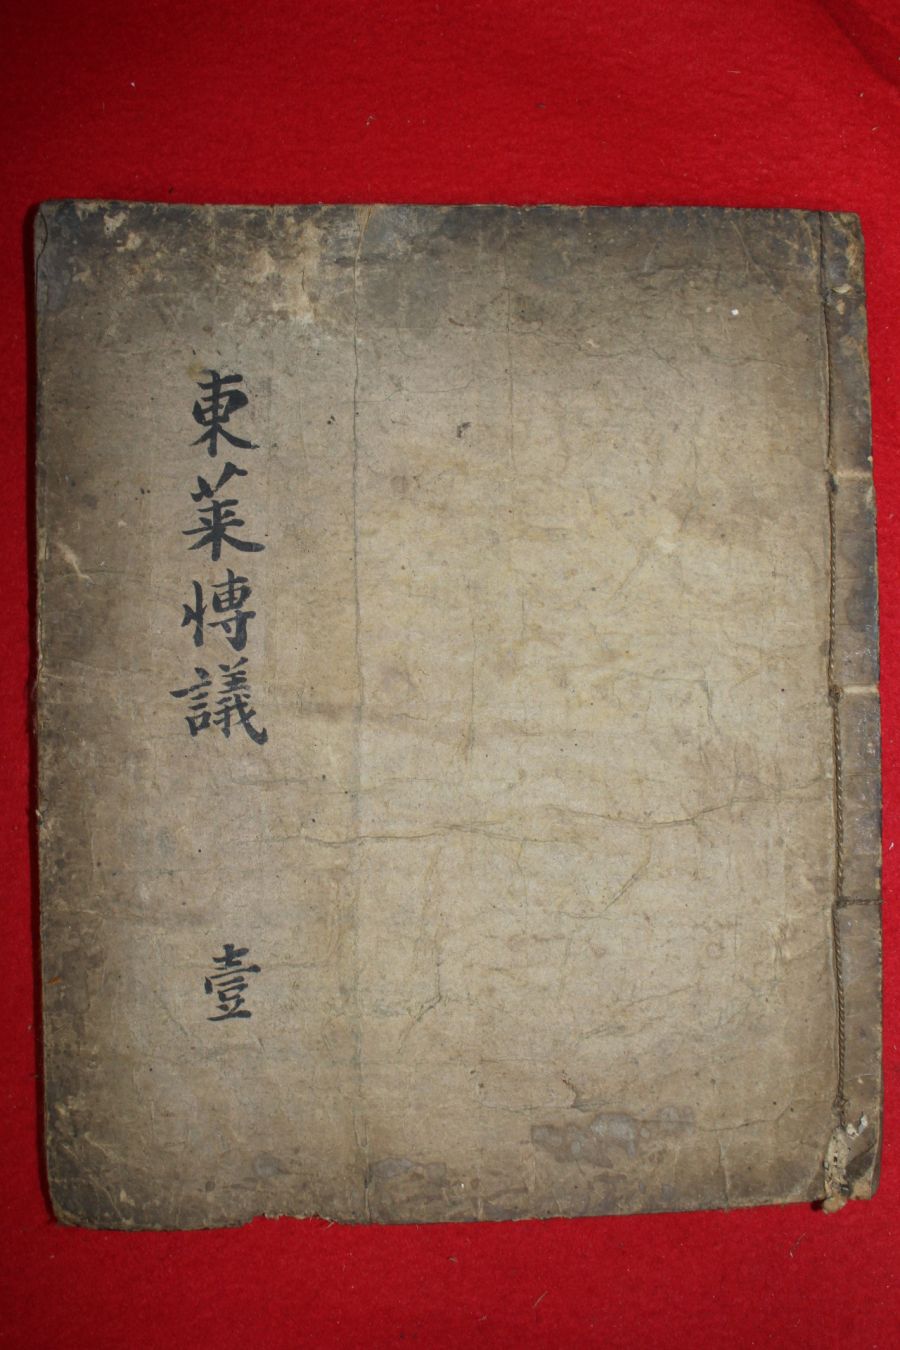 東萊愽議
壹